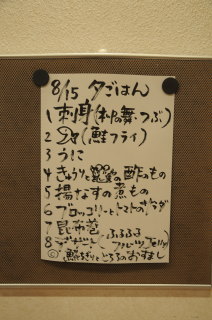 8/15 夕ごはん
1 刺身(・つぶ)
2 (鮭フライ)
3 うに
4 きゅうりと の酢のもの
5 揚なすの煮もの
6 ブロッコリーとトマトのサラダ
7 昆布巻
8 デザート(ふるふるフルーツJelly)
◎ とろろのおすまし